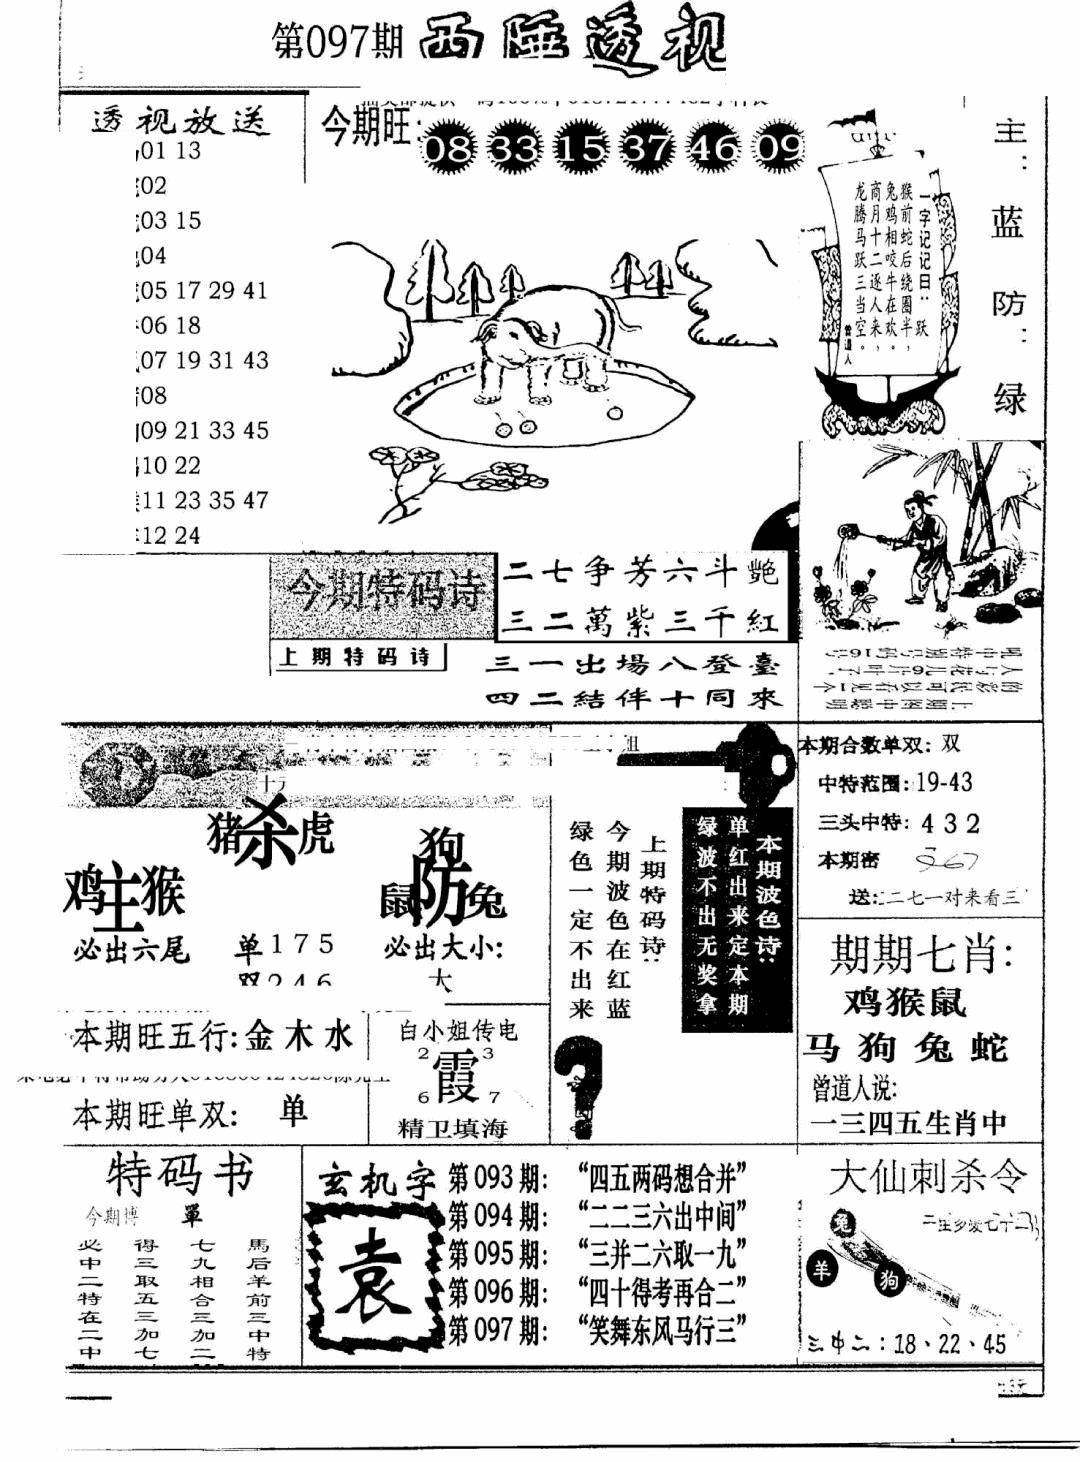 第097期 西陲透视
透视放送
01 13
02
03 15
04
05 17 29 41
06 18
07 19 31 43
08
09 21 33 45
10 22
11 23 35 47
12 24
今期旺:
08 33 15 37 46 09
一字记记曰:跃
猴前蛇后绕圈半,
兔鸡相咬牛在欢。
商月十二逐人来,
龙腾马跃三当空。
曾道人
主:蓝防:绿
今期特码诗
二七争芳六斗艶
三二萬紫三千紅
上期特码诗
三一出場八登臺
四二結伴十同來
上期图中聪明
的彩民可以看见一个
人与花儿9片叶子,
吨中特期号码16号
猪杀虎
鸡主猴
狗
鼠防兔
必出六尾
单175
双246
必出大小:
大
本期旺五行:金木水
本期旺单双: 单
白小姐传电
2 3
霞
6 7
精卫填海
本期波色诗:
单红出来定本期
绿波不出无奖拿
上期特码诗:
今期波色在红蓝
绿色一定不出来
本期合数单双: 双
中特范围: 19-43
三头中特: 4 3 2
本期密
送:二七一对来看三
期期七肖:
鸡猴鼠
马狗兔蛇
曾道人说:
一三四五生肖中
特码书
今期博 單
馬后羊前三中特
七九相合三加二
得三取五三加七
必中二特在二中
玄机字
袁
第093期: “四五两码想合并”
第094期: “二二三六出中间”
第095期: “三并二六取一九”
第096期: “四十得考再合二”
第097期: “笑舞东风马行三”
大仙刺杀令
兔
羊
狗
三中二:18、22、45